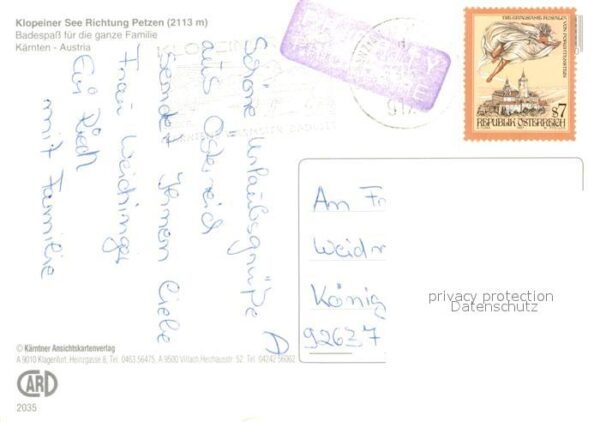 Klopeiner See Richtung Petzen (2113 m)
Badespaß für die ganze Familie
Kärnten - Austria
Schöne Urlaubsgrüße
aus Österreich
sendet Ihnen liebe
Frau
mit Familie
DIE GRAUSAME ROSALIA
VON FORCHTENSTEIN
S 7
REPUBLIK ÖSTERREICH
An Fr
Weid
König
92637
privacy protection
Datenschutz
© Kärntner Ansichtskartenverlag
A 9010 Klagenfurt, Heinzgasse 6, Tel. 0463 56475, A 9500 Villach, Heizhausstr. 52, Tel. 04242 56062
CARD
2035